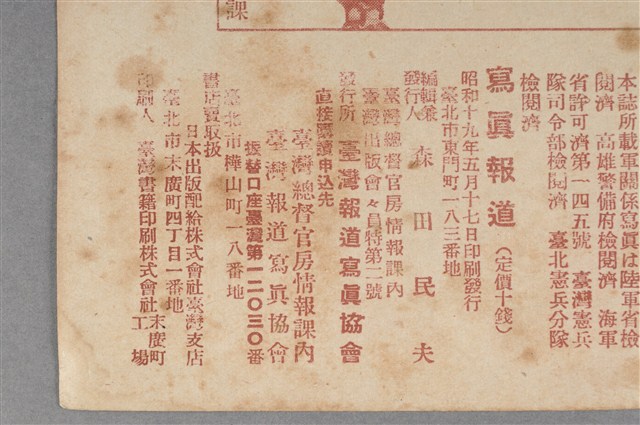 課
本誌所載軍關係寫眞は陸軍省檢
閱濟　高雄警備府檢閱濟　海軍
省許可濟第一四五號　臺灣憲兵
隊司令部檢閱濟　臺北憲兵分隊
檢閱濟
寫眞報道（定價十錢）
昭和十九年五月十七日印刷發行
臺北市東門町一八三番地
編輯兼發行人　森田民夫
臺灣總督官房情報課內
臺灣出版會々員特第二號
發行所　臺灣報道寫眞協會
直接購讀申込先
臺灣總督官房情報課內
臺灣報道寫眞協會
振替口座臺灣第一二〇三〇番
臺北市樺山町一八番地
書店賣取扱
日本出版配給株式會社臺灣支店
臺北市末廣町四丁目一番地
印刷人　臺灣書籍印刷株式會社末廣町工場